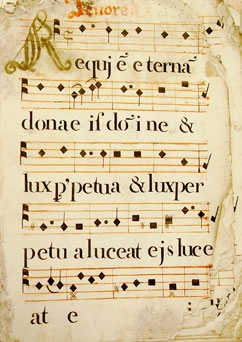 Tenore
Requjẽ eternã
dona e is dõine &
lux p'petua & lux per
petu a luceat ejs luce
at e